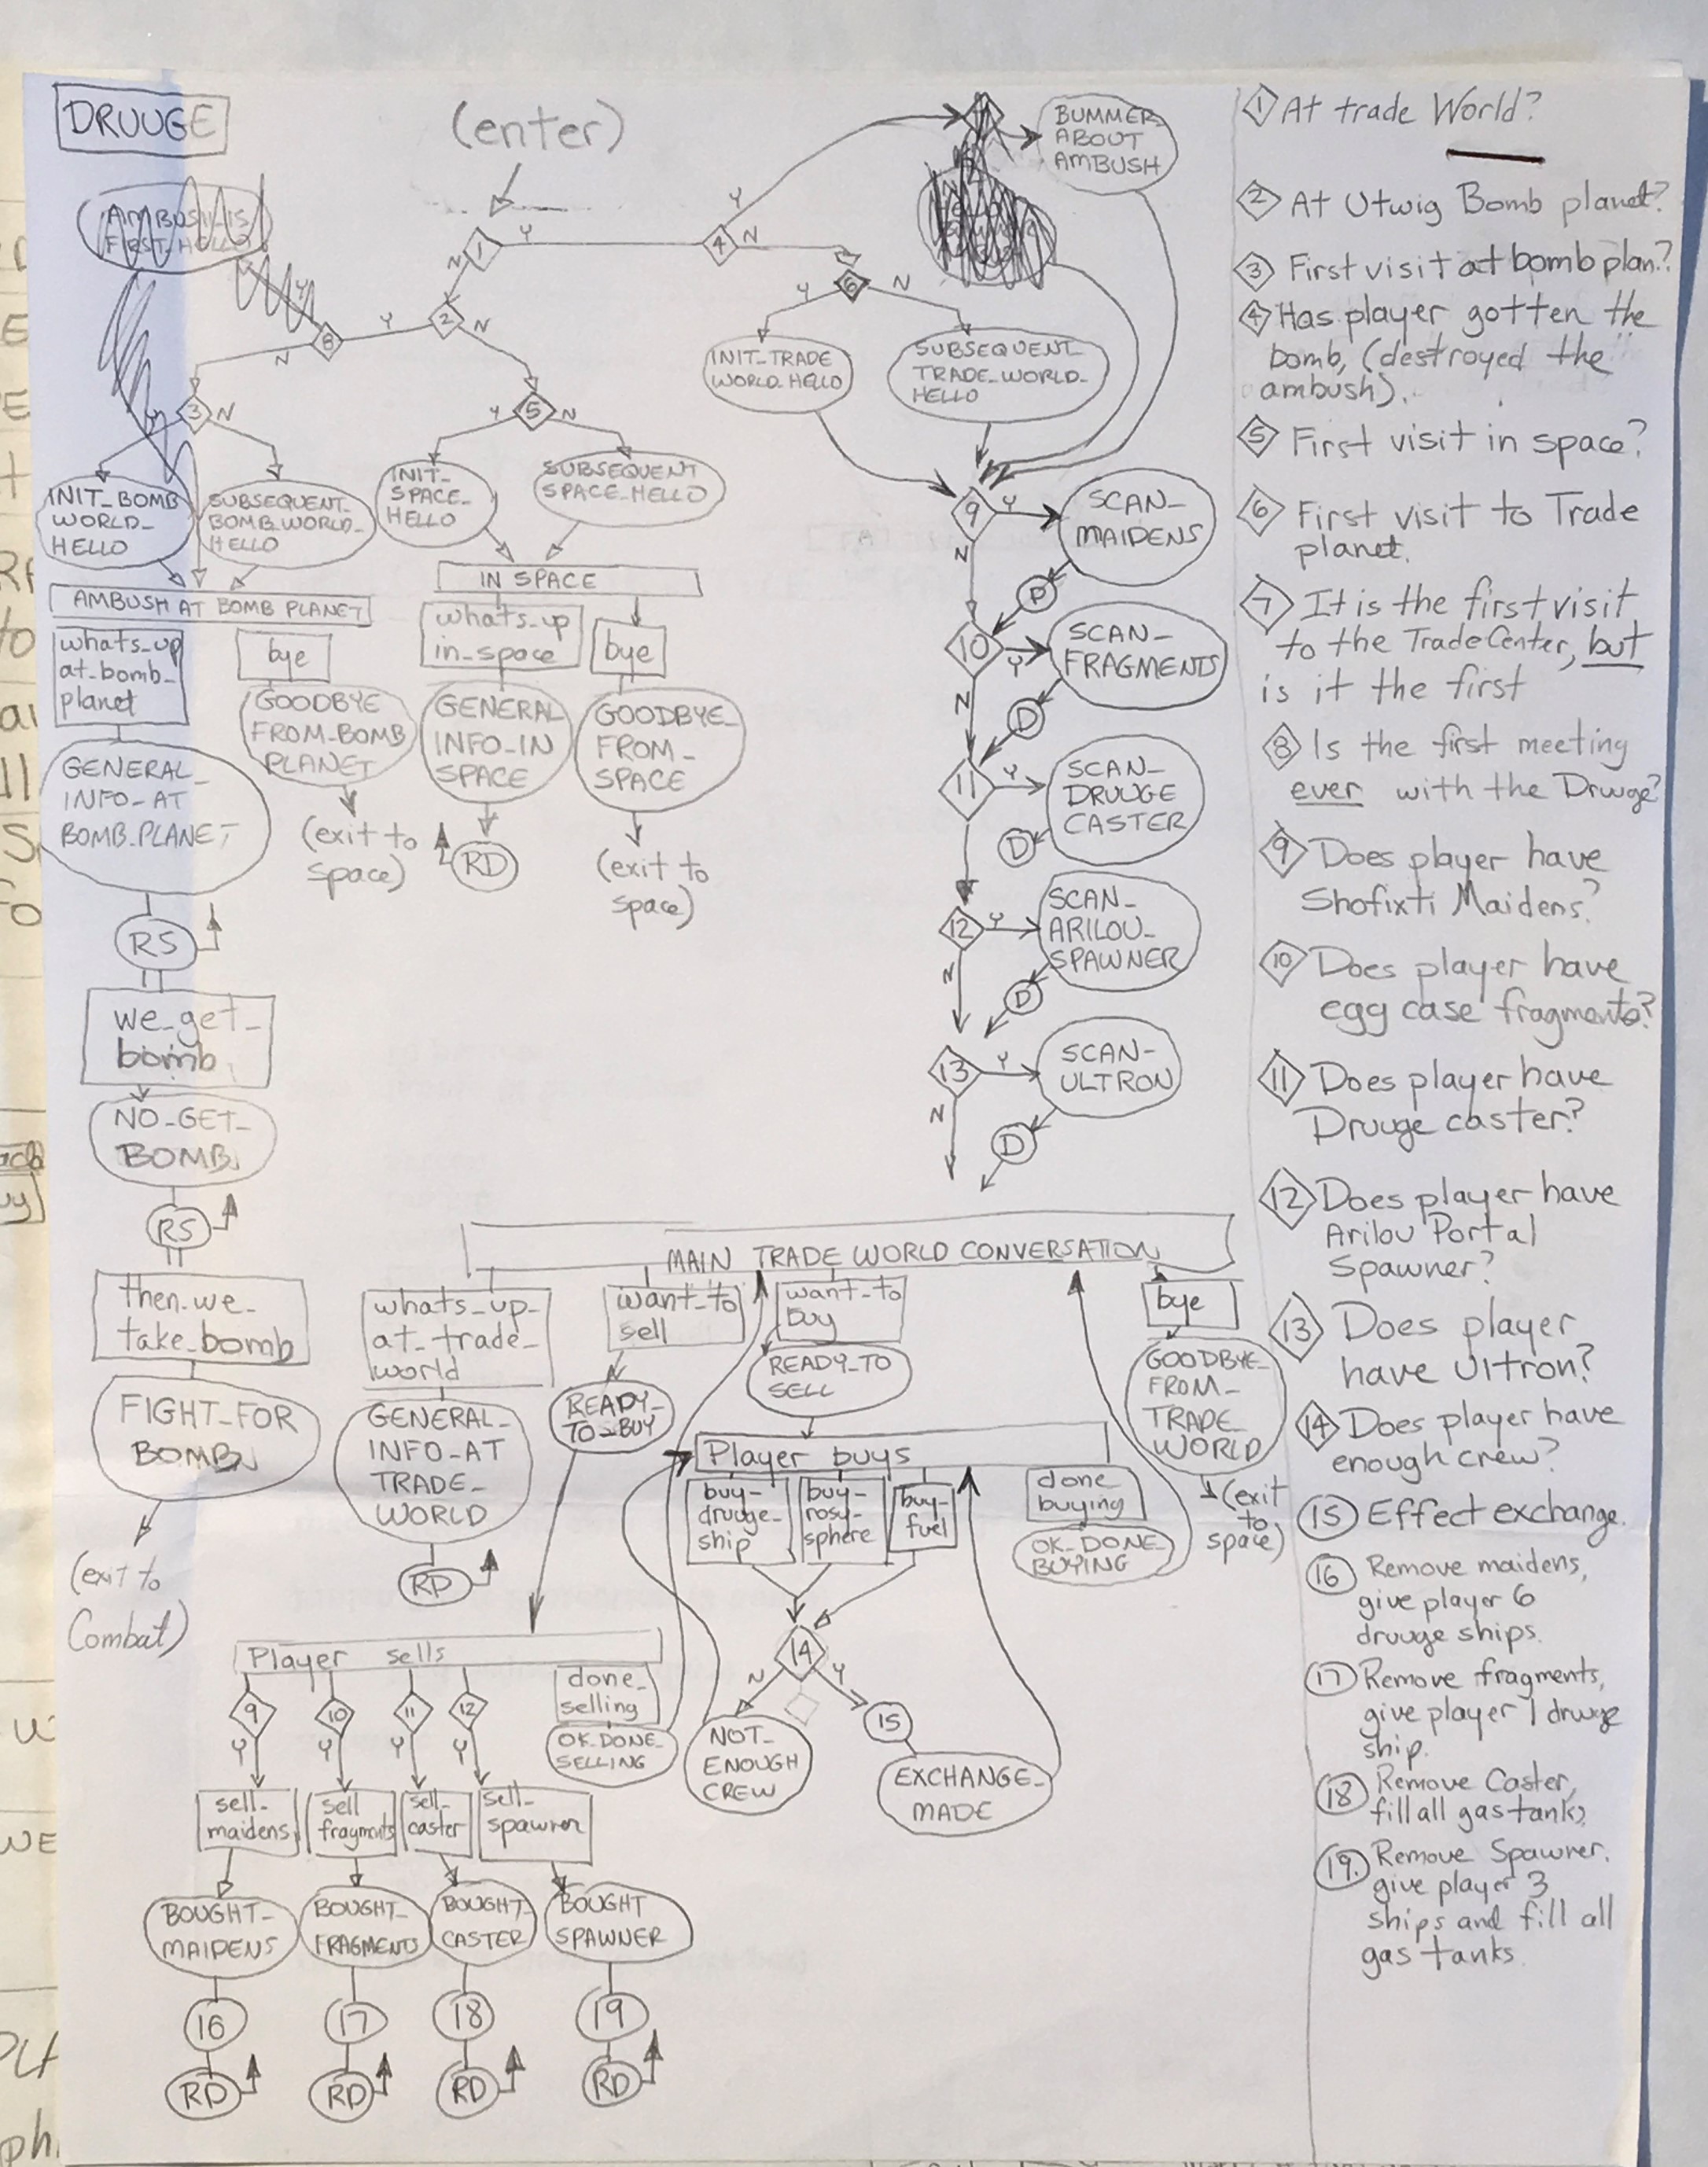 DRUUGE
(enter)
AMBUSH_IS
FIRST_HELLO
BUMMER_
ABOUT
AMBUSH
1
Y
N
4
Y
N
6
Y
N
2
Y
N
8
Y
N
3
N
5
Y
N
INIT_TRADE
WORLD_HELLO
SUBSEQUENT_
TRADE_WORLD_
HELLO
INIT_BOMB
WORLD_
HELLO
SUBSEQUENT_
BOMB_WORLD_
HELLO
INIT_
SPACE_
HELLO
SUBSEQUENT
SPACE_HELLO
AMBUSH AT BOMB PLANET
whats_up
at_bomb_
planet
bye
GENERAL_
INFO_AT
BOMB_PLANET
GOODBYE
FROM_BOMB
PLANET
(exit to
space)
IN SPACE
whats_up
in_space
bye
GENERAL
INFO_IN
SPACE
RD
GOODBYE_
FROM_
SPACE
(exit to
space)
RS
we_get_
bomb
NO_GET_
BOMB
RS
then_we_
take_bomb
FIGHT_FOR
BOMB
(exit to
Combat)
9
Y
N
SCAN_
MAIDENS
D
10
Y
N
SCAN_
FRAGMENTS
D
11
Y
SCAN_
DRUUGE
CASTER
D
12
Y
N
SCAN_
ARILOU_
SPAWNER
D
13
Y
N
SCAN_
ULTRON
D
MAIN TRADE WORLD CONVERSATION
whats_up_
at_trade_
world
GENERAL_
INFO_AT
TRADE_
WORLD
RD
want_to
sell
READY_
TO_BUY
want_to
buy
READY_TO
SELL
bye
GOODBYE_
FROM_
TRADE_
WORLD
(exit
to
space)
Player buys
buy_
druuge_
ship
buy_
rosy_
sphere
buy_
fuel
done
buying
OK_DONE_
BUYING
14
N
Y
NOT_
ENOUGH
CREW
15
EXCHANGE_
MADE
Player sells
9
Y
10
Y
11
Y
12
Y
done_
selling
OK_DONE_
SELLING
sell_
maidens
sell
fragments
sell_
caster
sell_
spawner
BOUGHT_
MAIDENS
BOUGHT_
FRAGMENTS
BOUGHT_
CASTER
BOUGHT
SPAWNER
16
17
18
19
RD
RD
RD
RD
1 At trade World?
2 At Utwig Bomb planet?
3 First visit at bomb plan.?
4 Has player gotten the
bomb, (destroyed the
ambush).
5 First visit in space?
6 First visit to Trade
planet.
7 It is the first visit
to the Trade Center, but
is it the first
8 Is the first meeting
ever with the Druuge?
9 Does player have
Shofixti Maidens?
10 Does player have
egg case fragments?
11 Does player have
Druuge caster?
12 Does player have
Arilou Portal
Spawner?
13 Does player
have Ultron?
14 Does player have
enough crew?
15 Effect exchange.
16 Remove maidens,
give player 6
druuge ships.
17 Remove fragments,
give player 1 druuge
ship.
18 Remove Caster,
fill all gas tanks,
19. Remove Spawner.
give player 3
ships and fill all
gas tanks.